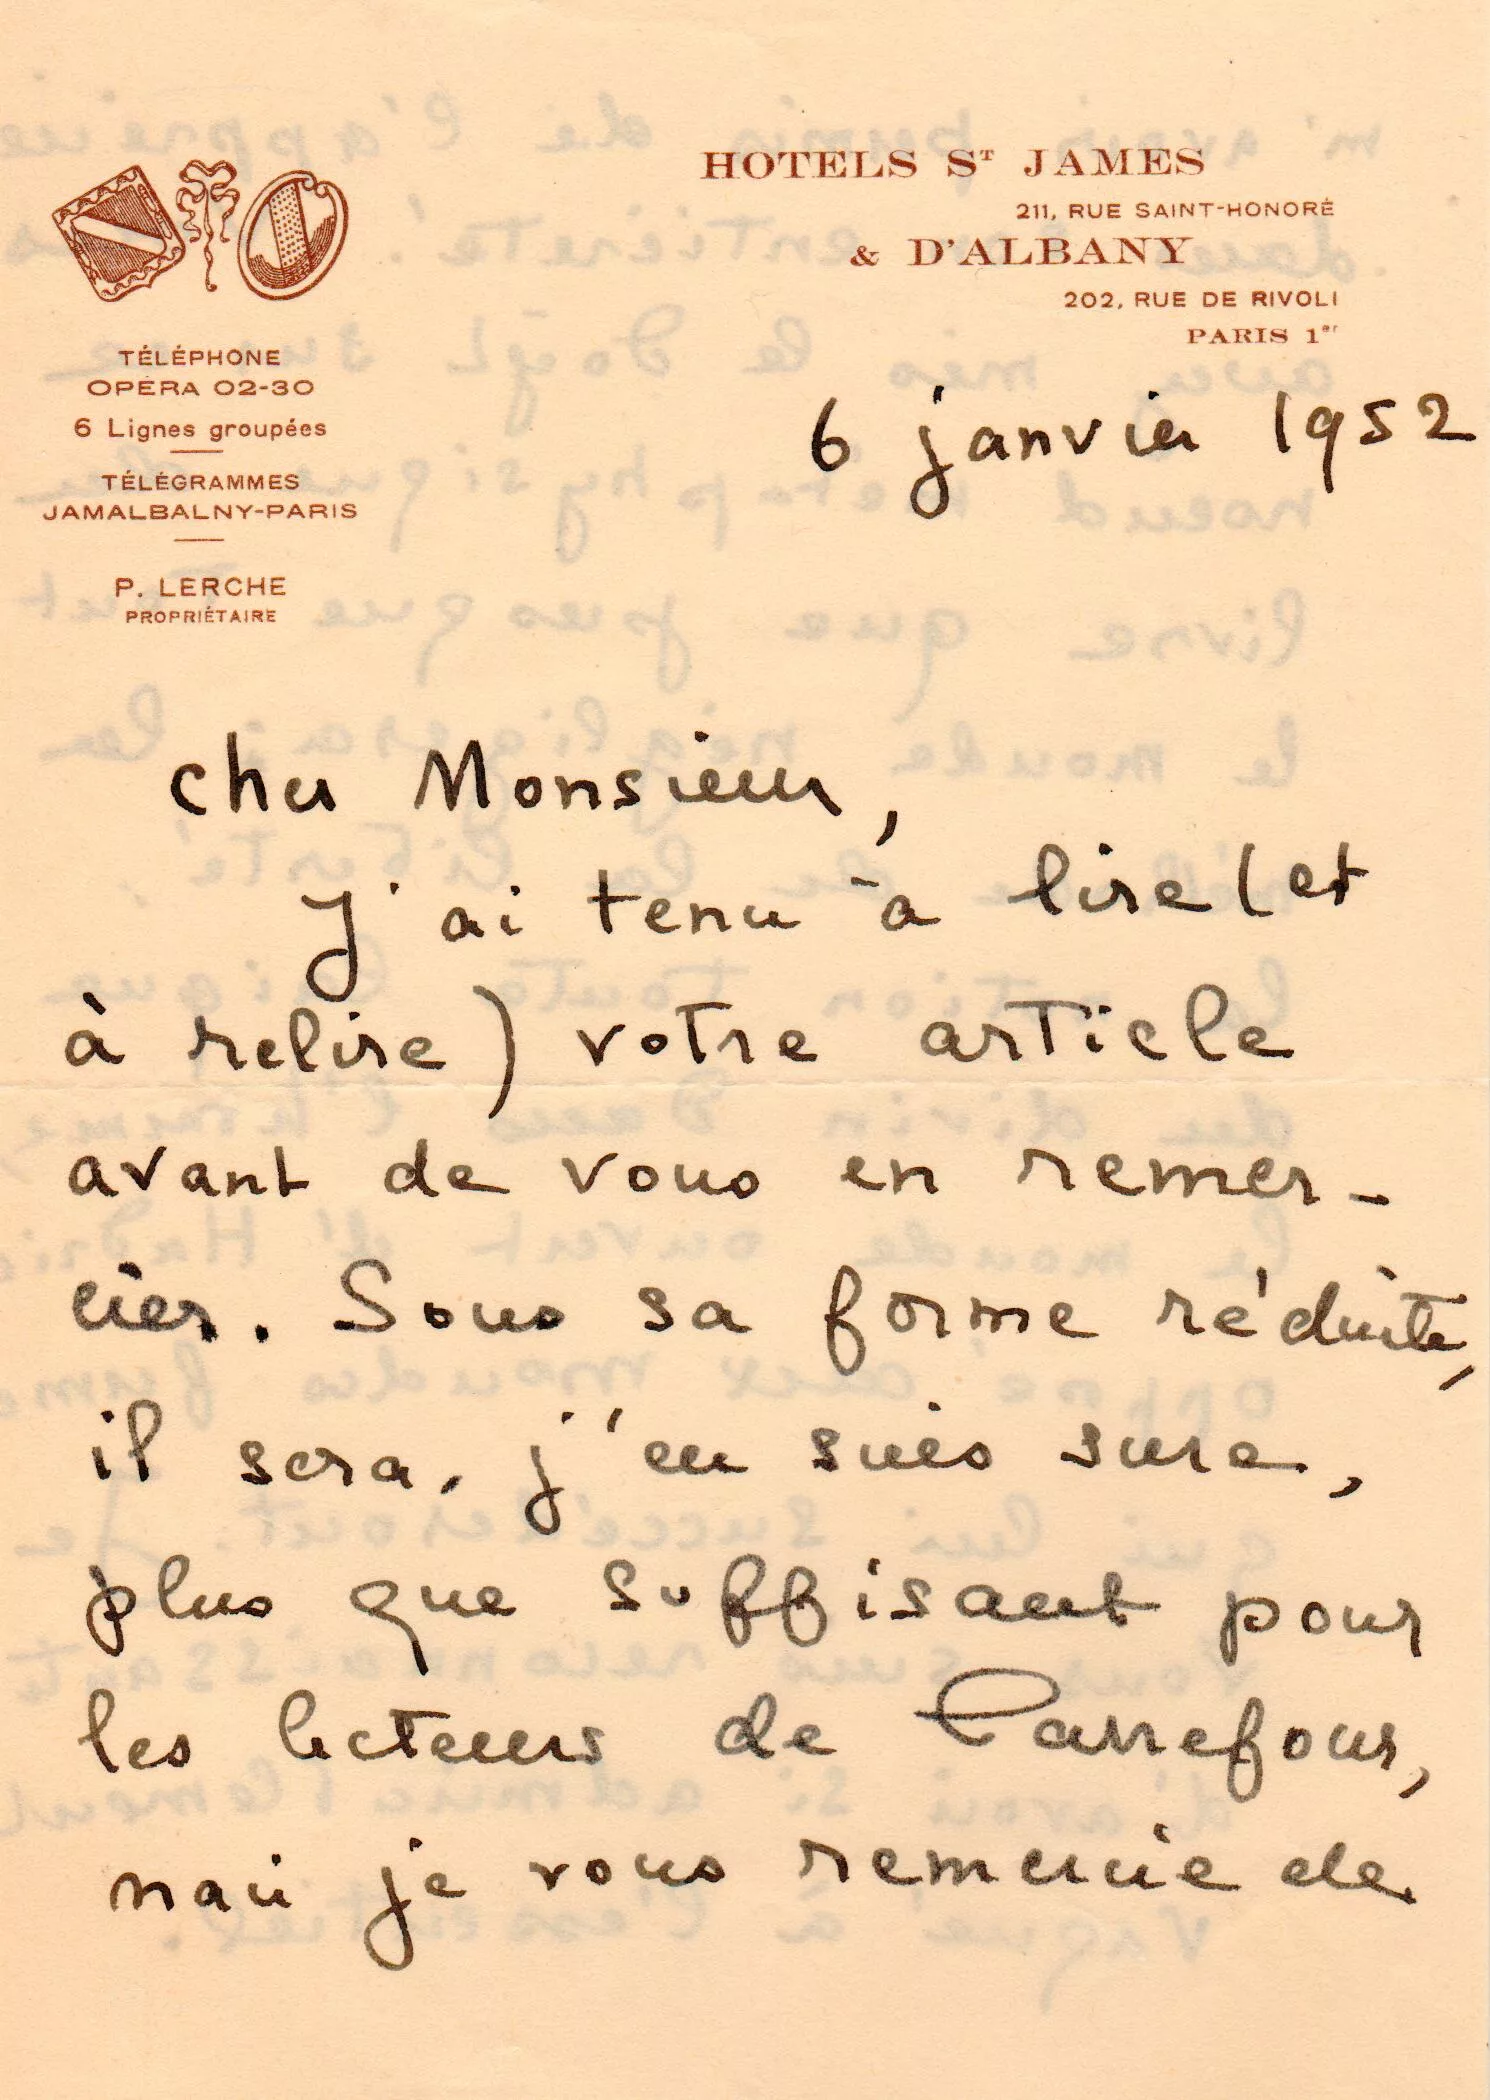 HOTELS ST JAMES
211, RUE SAINT-HONORÉ
& D'ALBANY
202, RUE DE RIVOLI
PARIS 1er
TÉLÉPHONE
OPÉRA 02-30
6 Lignes groupées
TÉLÉGRAMMES
JAMALBALNY-PARIS
P. LERCHE
PROPRIÉTAIRE
6 janvier 1952
Cher Monsieur,
J'ai tenu à lire (et
à relire) votre article
avant de vous en remer-
cier. Sous sa forme réduite,
il sera, j'en suis sure,
plus que suffisant pour
les lecteurs de Carrefour,
mais je vous remercie de